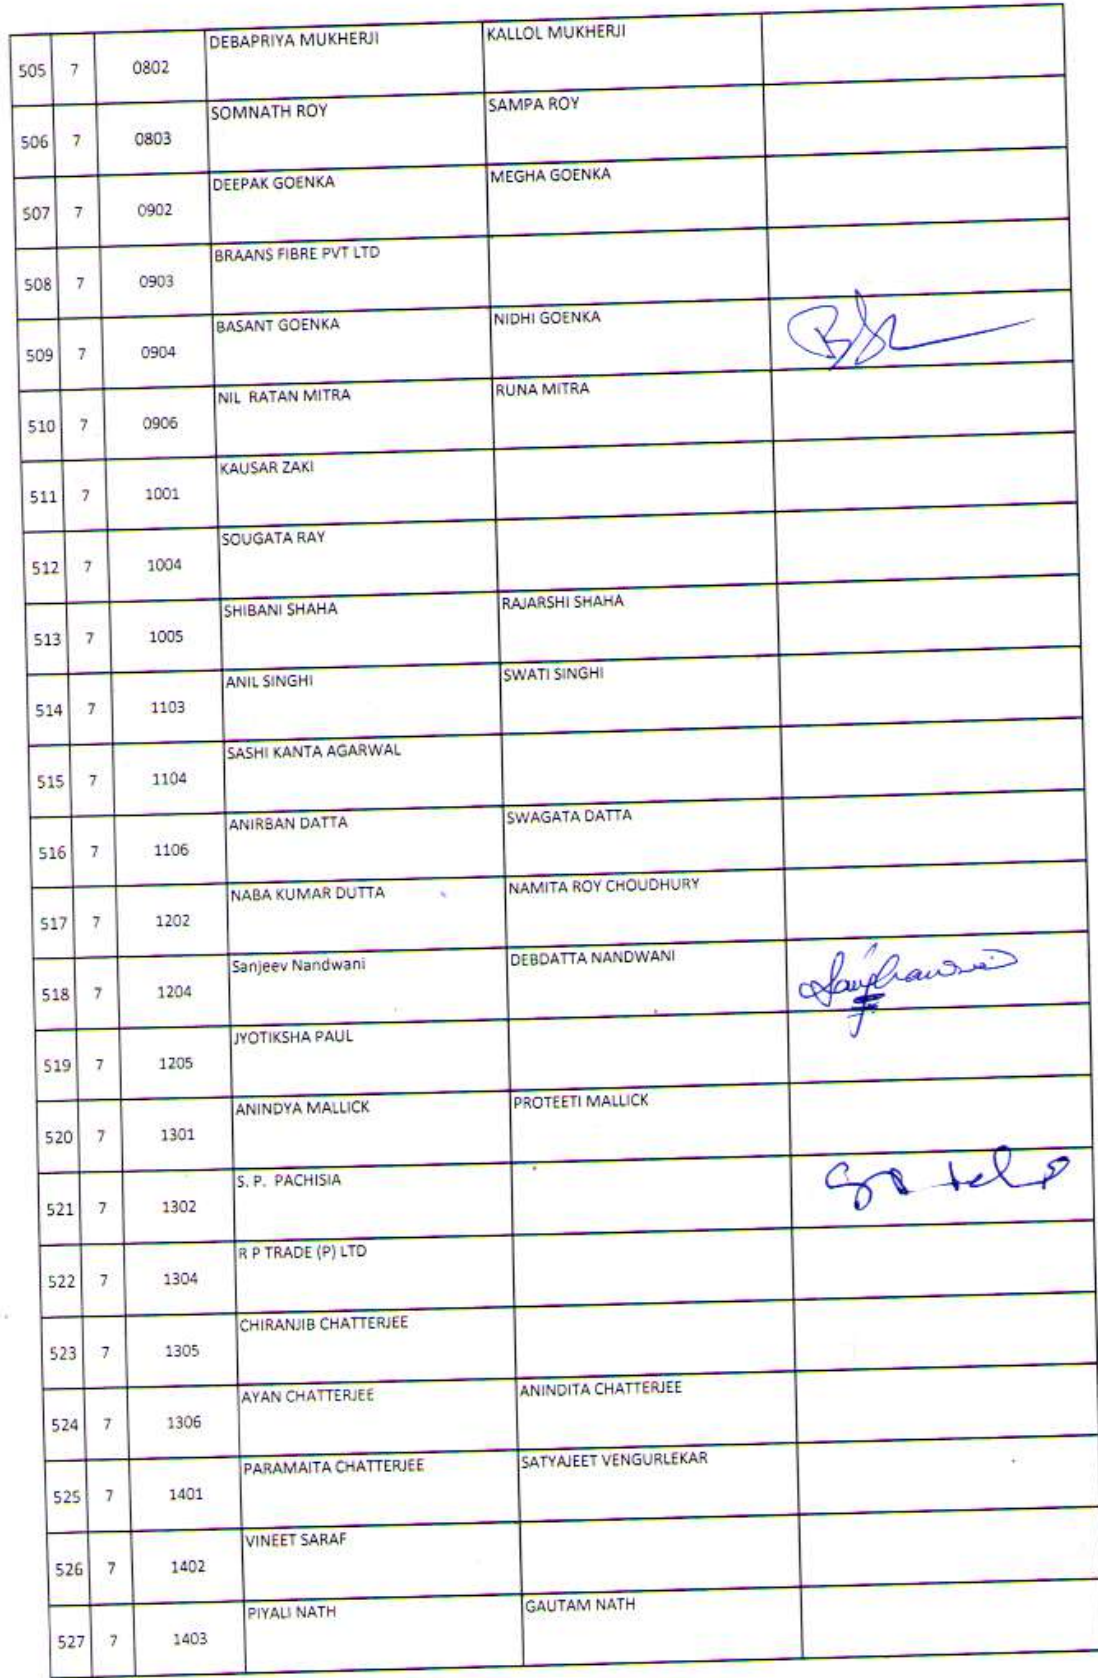 505 7 0802 DEBAPRIYA MUKHERJI KALLOL MUKHERJI
506 7 0803 SOMNATH ROY SAMPA ROY
507 7 0902 DEEPAK GOENKA MEGHA GOENKA
508 7 0903 BRAANS FIBRE PVT LTD
509 7 0904 BASANT GOENKA NIDHI GOENKA
510 7 0906 NIL RATAN MITRA RUNA MITRA
511 7 1001 KAUSAR ZAKI
512 7 1004 SOUGATA RAY
513 7 1005 SHIBANI SHAHA RAJARSHI SHAHA
514 7 1103 ANIL SINGHI SWATI SINGHI
515 7 1104 SASHI KANTA AGARWAL
516 7 1106 ANIRBAN DATTA SWAGATA DATTA
517 7 1202 NABA KUMAR DUTTA NAMITA ROY CHOUDHURY
518 7 1204 Sanjeev Nandwani DEBDATTA NANDWANI
519 7 1205 JYOTIKSHA PAUL
520 7 1301 ANINDYA MALLICK PROTEETI MALLICK
521 7 1302 S. P. PACHISIA
522 7 1304 R P TRADE (P) LTD
523 7 1305 CHIRANJIB CHATTERJEE
524 7 1306 AYAN CHATTERJEE ANINDITA CHATTERJEE
525 7 1401 PARAMAITA CHATTERJEE SATYAJEET VENGURLEKAR
526 7 1402 VINEET SARAF
527 7 1403 PIYALI NATH GAUTAM NATH